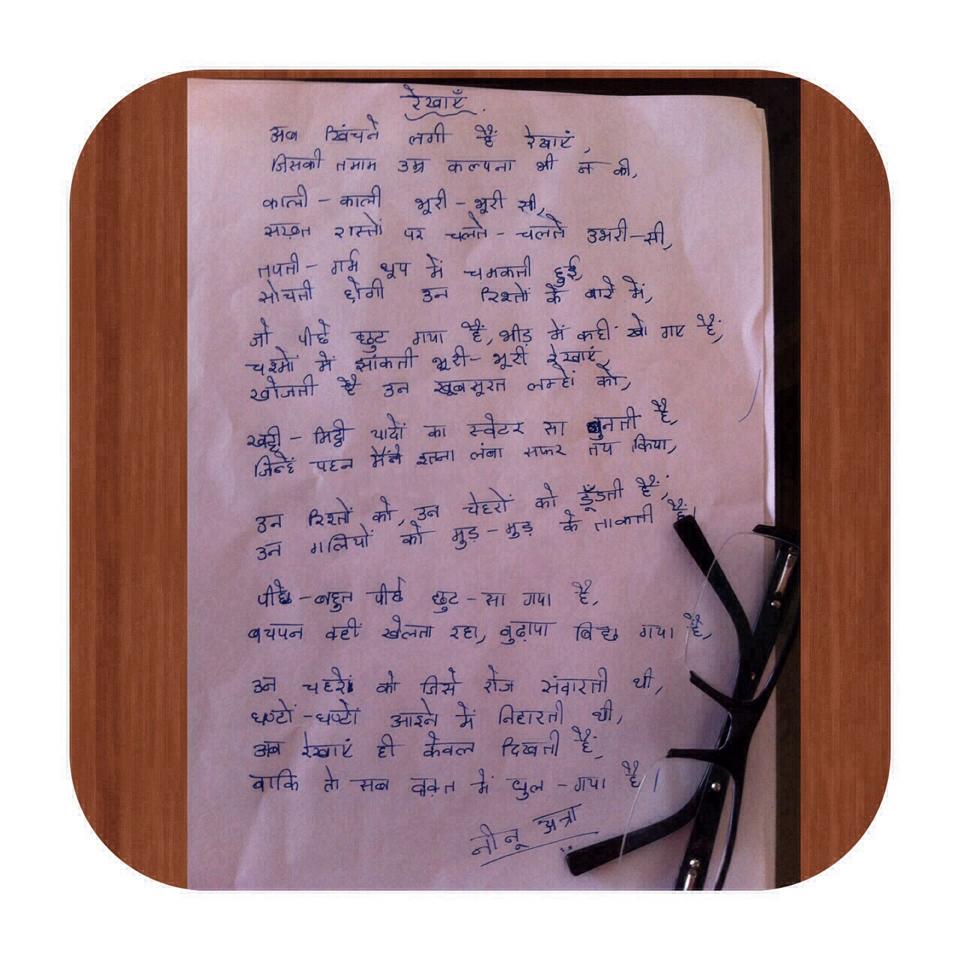 रेखाएँ
अब खिंचने लगी हैं रेखाएं,
जिसकी तमाम उम्र कल्पना भी न की,
काली - काली भूरी - भूरी सी,
सख़्त रास्तों पर चलते - चलते उभरी-सी,
तपती - गर्म धूप में चमकती हुई,
सोचती होगी उन रिश्तों के बारे में,
जो पीछे छुट गया है, भीड़ में कहीं खो गए हैं,
चश्मों में झांकती भूरी - भूरी रेखाएं,
खोजती है उन खूबसूरत लम्हों को,
खट्टी - मिट्ठी यादों का स्वेटर सा बुनती है,
जिन्हें पहन मैंने इतना लंबा सफर तय किया,
उन रिश्तों को, उन चेहरों को ढूँडती है,
उन गलियों को मुड़ - मुड़ के ताकती है,
पीछे - बहुत पीछे छुट - सा गया है,
बचपन वहीं खेलता रहा, बुढ़ापा गया है,
उन चहरों को जिसे रोज संवारती थी,
घण्टों - घण्टों आइने में निहारती थी,
अब रेखाएं ही केवल दिखती हैं,
बाकि तो सब वक़्त में धुल - गया है।
नीनू अत्रा